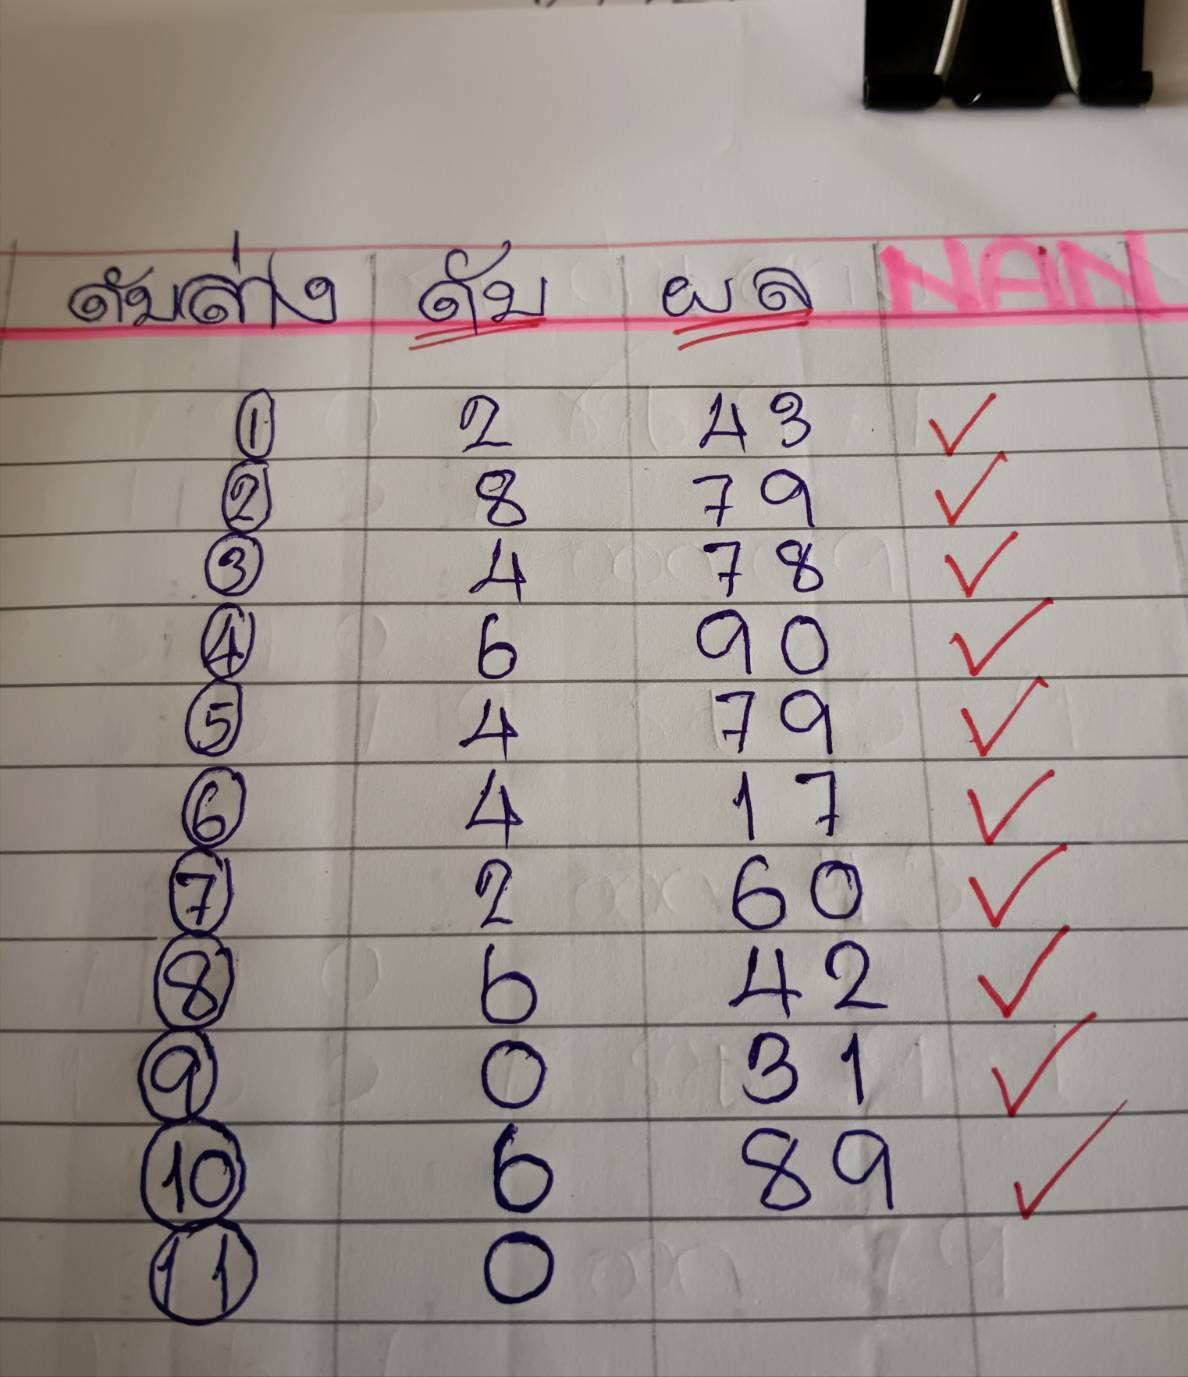 ดับล่าง ดับ ผล NAN
1 2 43 ✓
2 8 79 ✓
3 4 78 ✓
4 6 90 ✓
5 4 79 ✓
6 4 17 ✓
7 2 60 ✓
8 6 42 ✓
9 0 31 ✓
10 6 89 ✓
11 0